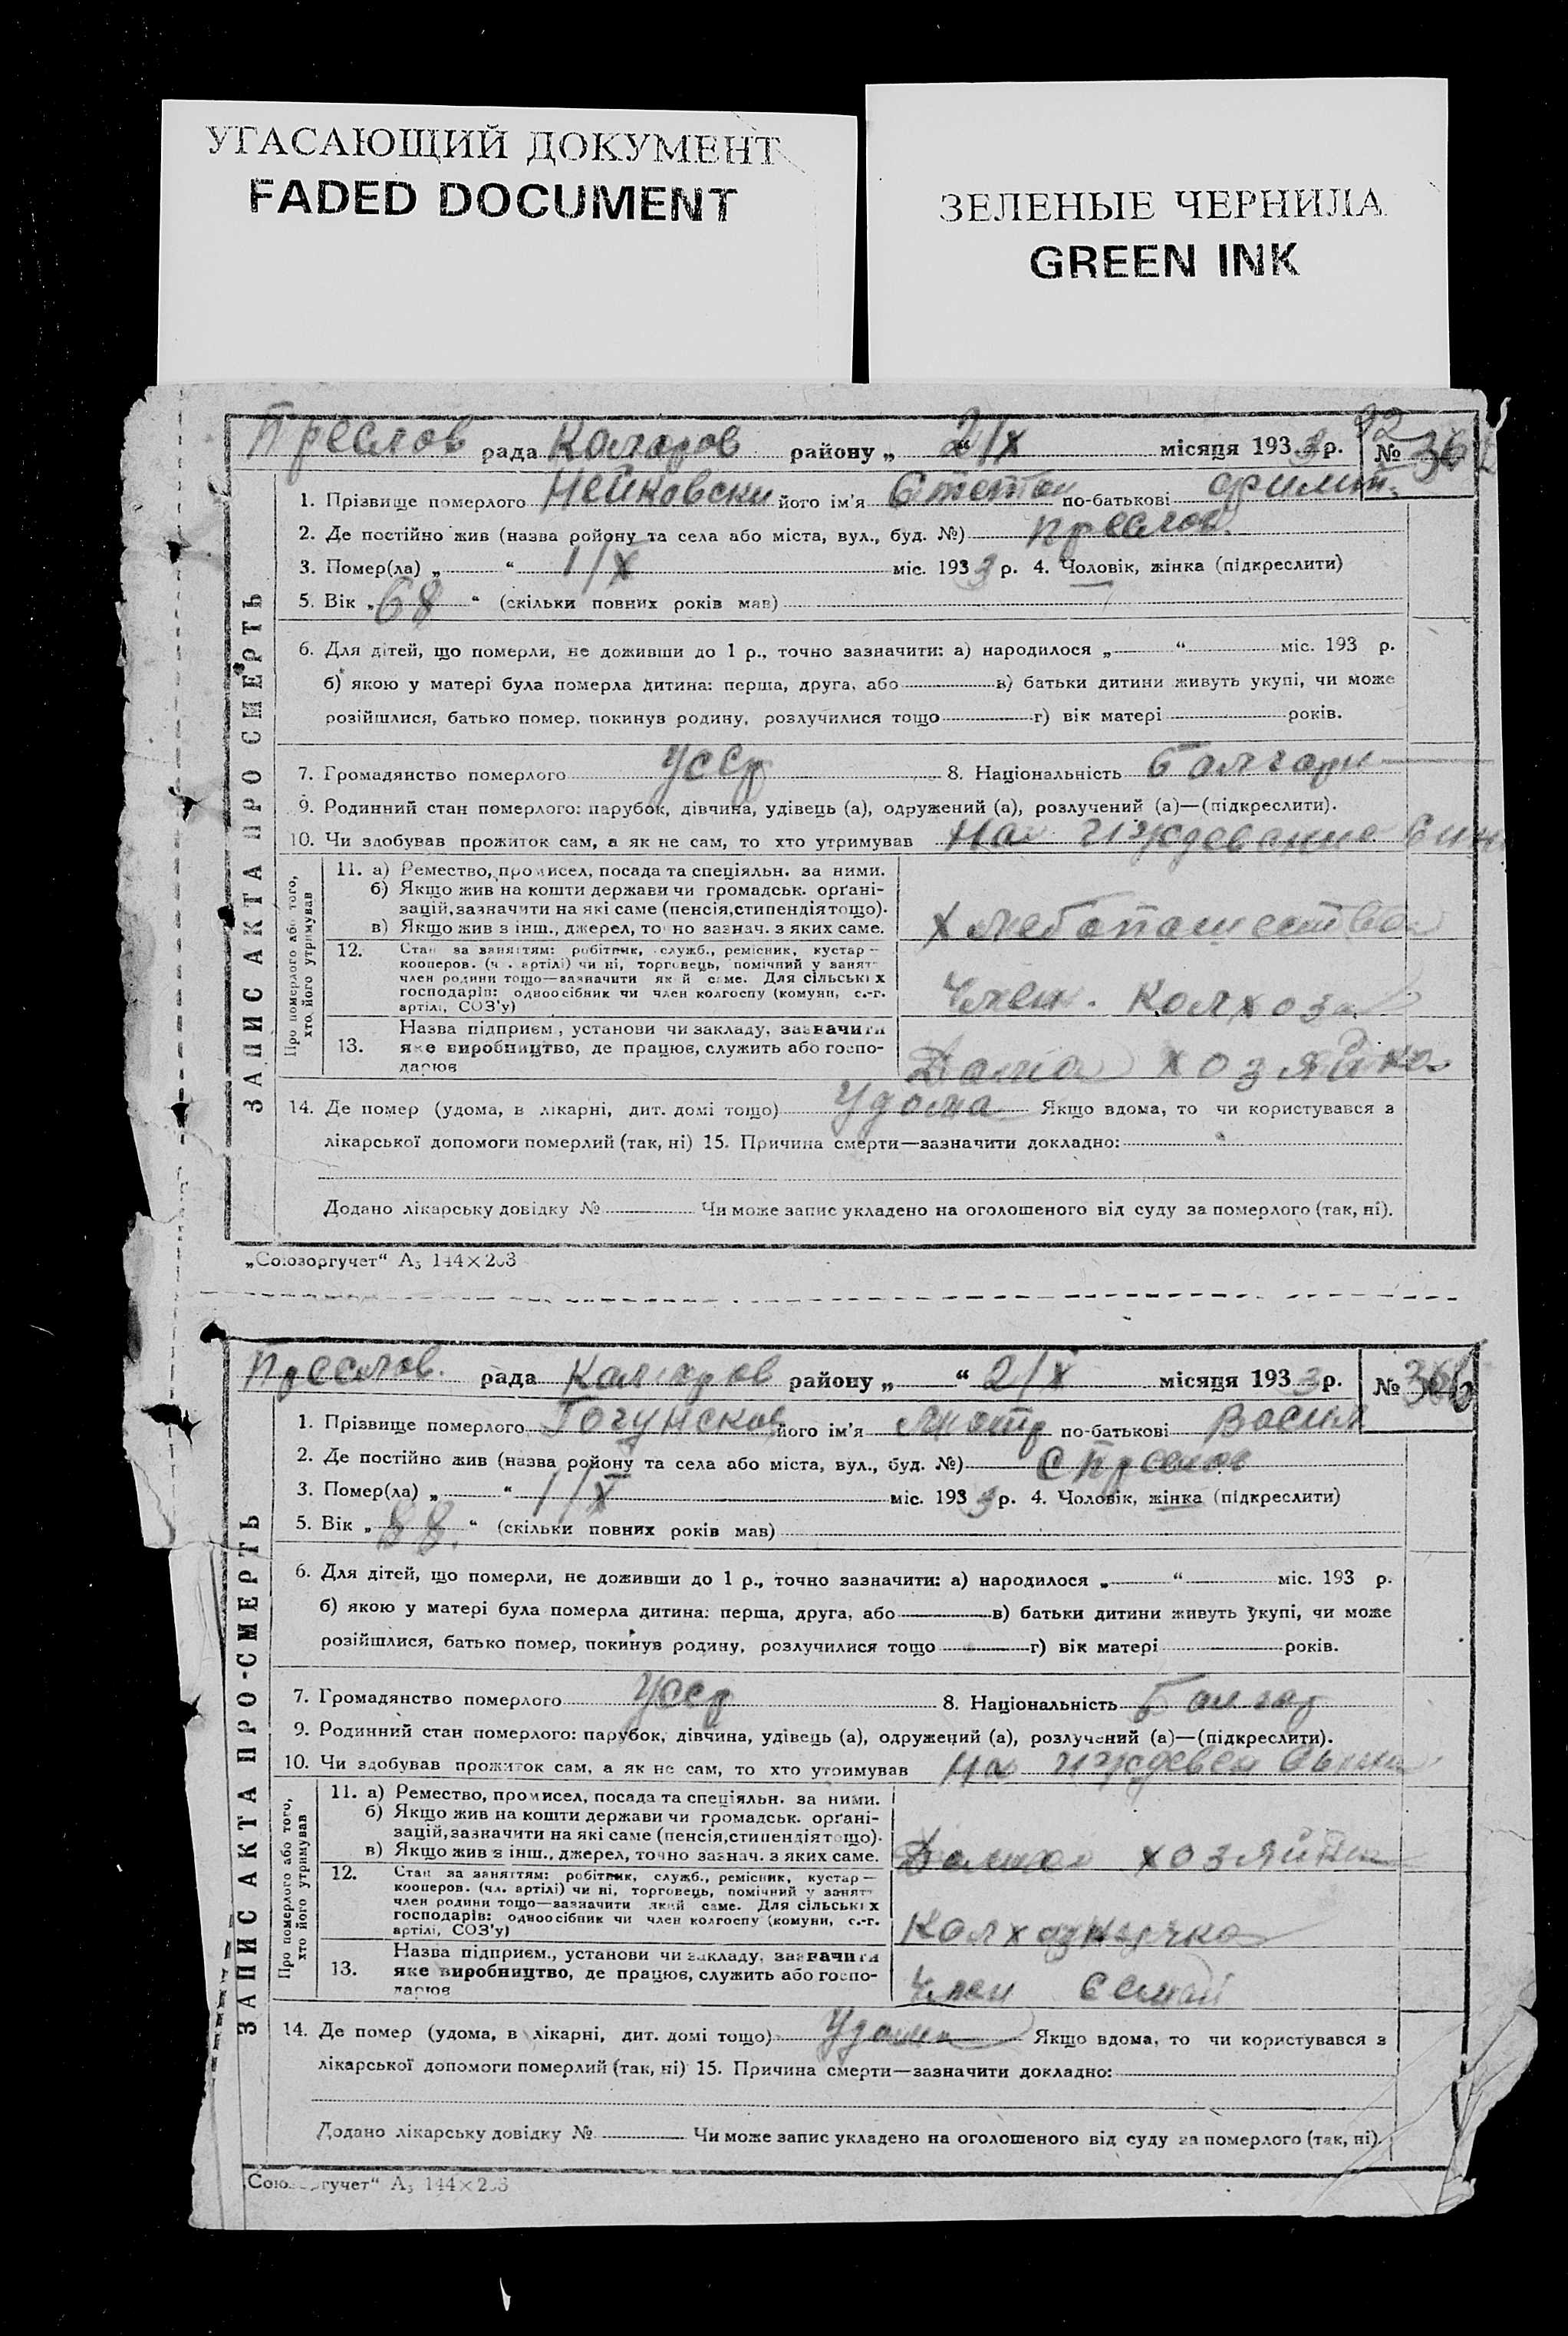 УГАСАЮЩИЙ ДОКУМЕНТ
FADED DOCUMENT
ЗЕЛЕНЫЕ ЧЕРНИЛА
GREEN INK
92
Преслов рада Коларов району „ 2/X місяця 1933 р. №
1. Прізвище померлого Нейковски його ім'я по-батькові Филип.
2. Де постійно жив (назва ройону та села або міста, вул., буд. №) Преслов
3. Помер(ла) „ “ 1/X міс. 1933 р. 4. Чоловік, жінка (підкреслити)
5. Вік „68“ (скільки повних років мав)
6. Для дітей, що померли, не доживши до 1 р., точно зазначити: а) народилося „ “ міс. 193 р.
б) якою у матері була померла дитина: перша, друга, або в) батьки дитини живуть укупі, чи може
розійшлися, батько помер, покинув родину, розлучилися тощо г) вік матері років.
7. Громадянство померлого УССР 8. Національність Болгари
9. Родинний стан померлого: парубок, дівчина, удівець (а), одружений (а), розлучений (а)—(підкреслити).
10. Чи здобував прожиток сам, а як не сам, то хто утримував На иждевение
Про померлого або того,
хто його утримував
11. а) Ремество, промисел, посада та спеціяльн. за ними.
б) Якщо жив на кошти держави чи громадськ. орґані-
зацій, зазначити на які саме (пенсія, стипендія тощо).
в) Якщо жив з інш., джерел, точно зазнач. з яких саме.
Хлебопашество
12. Стан за заняттям: робітник, служб., ремісник, кустар—
кооперов. (чл. артілі) чи ні, торговець, помічний у занятт
член родини тощо—зазначити який саме. Для сільських
господарів: одноосібник чи член колгоспу (комуни, с.-г.
артілі, СОЗ'у)
Член. Колхоза
13. Назва підприєм., установи чи закладу, зазначити
яке виробництво, де працює, служить або госпо-
дарює
Дома хозяйка
14. Де помер (удома, в лікарні, дит. домі тощо) Удома Якщо вдома, то чи користувався з
лікарської допомоги померлий (так, ні) 15. Причина смерти—зазначити докладно:
Додано лікарську довідку № Чи може запис укладено на оголошеного від суду за померлого (так, ні).
ЗАПИС АКТА ПРО СМЕРТЬ
„Союзоргучет“ А₅ 144×203
Преслов. рада Коларов району „ “ 2/X місяця 1933 р. № 366
1. Прізвище померлого його ім'я по-батькові Васил
2. Де постійно жив (назва ройону та села або міста, вул., буд. №) с Преслов
3. Помер(ла) „ “ 1/X міс. 1933 р. 4. Чоловік, жінка (підкреслити)
5. Вік „88.“ (скільки повних років мав)
6. Для дітей, що померли, не доживши до 1 р., точно зазначити: а) народилося „ “ міс. 193 р.
б) якою у матері була померла дитина: перша, друга, або в) батьки дитини живуть укупі, чи може
розійшлися, батько помер, покинув родину, розлучилися тощо г) вік матері років.
7. Громадянство померлого УССР 8. Національність Болгар
9. Родинний стан померлого: парубок, дівчина, удівець (а), одружений (а), розлучений (а)—(підкреслити).
10. Чи здобував прожиток сам, а як не сам, то хто утримував На иждевен Сына
Про померлого або того,
хто його утримував
11. а) Ремество, промисел, посада та спеціяльн. за ними.
б) Якщо жив на кошти держави чи громадськ. орґані-
зацій, зазначити на які саме (пенсія, стипендія тощо).
в) Якщо жив з інш., джерел, точно зазнач. з яких саме.
Дома хозяйка
12. Стан за заняттям: робітник, служб., ремісник, кустар—
кооперов. (чл. артілі) чи ні, торговець, помічний у занятт
член родини тощо—зазначити який саме. Для сільських
господарів: одноосібник чи член колгоспу (комуни, с.-г.
артілі, СОЗ'у)
Колхозничка
13. Назва підприєм., установи чи закладу, зазначити
яке виробництво, де працює, служить або госпо-
дарює
Член семьи
14. Де помер (удома, в лікарні, дит. домі тощо) Удома Якщо вдома, то чи користувався з
лікарської допомоги померлий (так, ні) 15. Причина смерти—зазначити докладно:
Додано лікарську довідку № Чи може запис укладено на оголошеного від суду за померлого (так, ні).
ЗАПИС АКТА ПРО СМЕРТЬ
„Союзоргучет“ А₅ 144×203